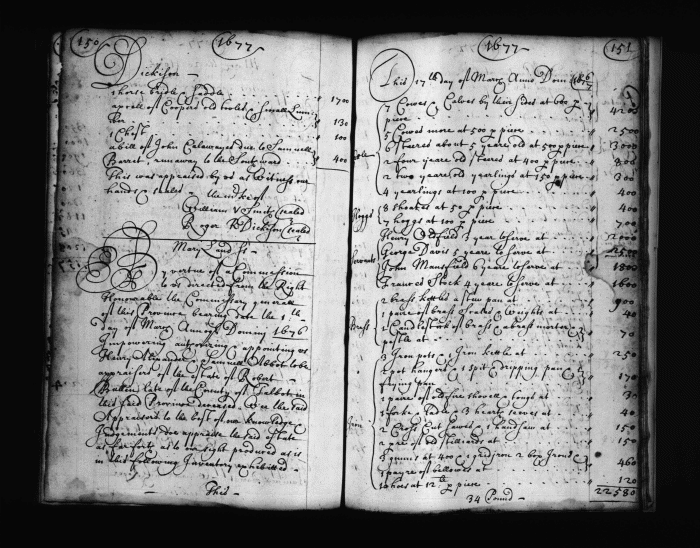 150
1677
Dickison —
1 horse bridle Saddle 1700
a prell of Coopers old tooles & small Lum
ber 130
1 Chest 100
a bill of John Calawayes due to Samuell
Barret runaway to the Southward 400
This was appraised by us as Witness our
hands & seales
William Smith sealed
Roger Dickison sealed
Mary Land ss
By vertue of a Commission
to us directed from the Right
Honourable the Commissary generall
of this Province bearing date the 1th
day of March Annoq Domini 1676
Impowering authorizing & appointing us
Henry Alexander & Samuell Abbot to be
appraisors of the Estate of Robert
late of the County of Talbot in
the said Province deceased. Wee the said
Appraisors to the best of our knowledge &
Judgements doe appraise the said estate
as far forth as to our sight produced as is
in this following Inventory exhibited —
This —
1677
151
This 17th day of March Anno Domi 1676/7
7 Cowes & Calves by their sides at 600 p
piece 4200
5 Cowes more at 500 p piece 2500
6 Steeres about 5 yeare old at 500 p piece 3000
2 four yeare old steeres at 400 p piece 800
2 two yeare old yearlings at 150 p piece 300
4 yearlings at 100 p piece 400
Hoggs
8 shoates at 50 p piece 400
7 hoggs at 100 p piece 700
Servants
Henry Oldfield 3 yeare to serve at 2000
George Davis 5 yeare to serve at
John Mansfield 6 yeare to serve at 1800
Francis Stock 4 yeare to serve at 1600
Brass
2 brass kettles a stew pan at 900
1 paire of brass Scales & Weights at 40
1 Candlestick of brass & a brass morter &
pestle at 70
Iron
3 Iron pots & Iron kettle at 250
2 pot hangers 1 spit & dripping pan &
frying pan 170
1 paire of old fire shovell & tongs at 30
40
2 Cross Cut sawes & handsaw at 150
2 pre of old at 150
3 gunns at 400 & 1 gridiron 2 box Irons &
1 payre of bellowes at 460
10 hoes at 12 p piece 120
22580
34 Pound —